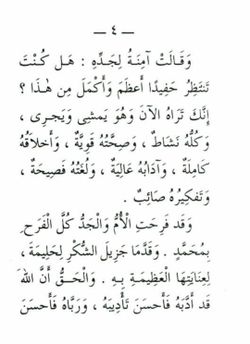 — ٤ —
وَقَالَتْ آمِنَةُ لِجَدِّهِ : هَلْ كُنْتَ
تَنتَظِرُ حَفِيدًا أَعظَمَ وَأَكْمَلَ مِن هٰذَا ؟
إِنَّكَ تَرَاهُ الآنَ وَهْوَ يَمشِى وَيَجرِى ،
وَكُلُّهُ نَشَاطٌ ، وَصِحَّتُهُ قَوِيَّةٌ ، وَأَخلَاقُهُ
كَامِلَةٌ ، وَآدَابُهُ عَالِيَةٌ ، وَلُغَتُهُ فَصِيحَةٌ ،
وَتَفكِيرُهُ صَائِبٌ .
وَقَد فَرِحَتِ الْأُمُّ وَالْجَدُّ كُلَّ الْفَرَحِ
بِمُحَمَّدٍ . وَقَدَّمَا جَزِيلَ الشُّكْرِ لِحَلِيمَةَ ،
لِعِنَايَتِهَا الْعَظِيمَةِ بِهِ . وَالْحَقُّ أَنَّ اللهَ
قَد أَدَّبَهُ فَأَحسَنَ تَأْدِيبَهُ ، وَرَبَّاهُ فَأَحسَنَ